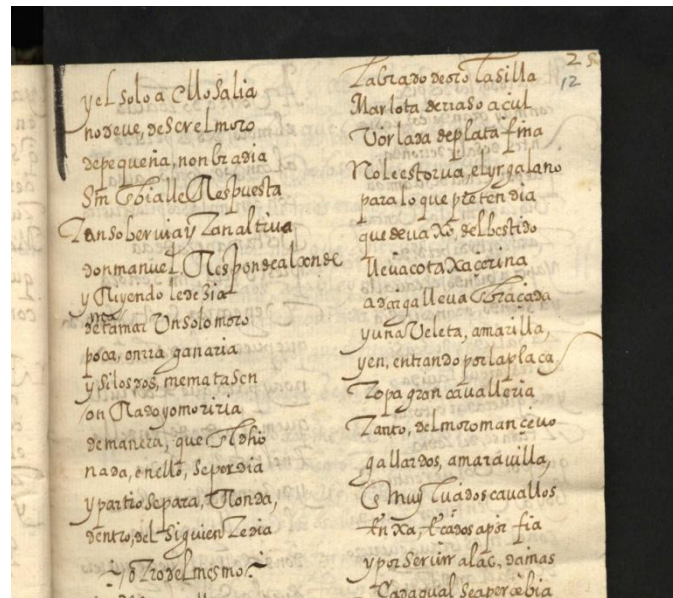 y el solo a ello Salia
no deue, de Ser el moro
de pequeña, nonbradia
Sin
Tan soberuia y Tan altiua
don manuel Responde al conde
y Riyendo le dezia
de tamar Un solo moro
poca, onrra ganaria
y Si los dos, me matasen
on Rado yo moriria
de manera, que
nada, en ello, Se perdia
y partio Se para, Ronda,
dentro, del Siguien Te dia
otro del mesmo
25
12
Labrado de oro la silla
Marlota de rraso açul
Vorlada de plata fina
No le estorua, el yr galano
para lo que pretendia
que deuaxo, del bestido
lleua cota Xacerina
adarga lleua
y una Veleta, amarilla,
y en, entrando por la plaça
Topa gran caualleria
Tanto, del moro manceuo
gallardos, amarauilla,
muy cauallos
a por fia
y por Seruir a las, damas
Cada qual Se aperçebia